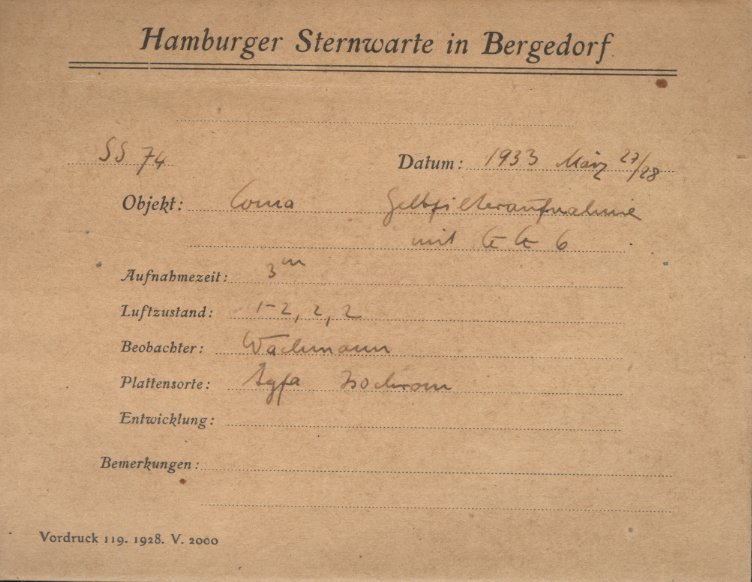 Hamburger Sternwarte in Bergedorf
SS 74 Datum: 1933 März 27/28
Objekt: Coma Gelbfilteraufnahme
mit G G 6
Aufnahmezeit: 3ᵐ
Luftzustand: 1-2, 2, 2
Beobachter: Wachmann
Plattensorte: Agfa Isochrom
Entwicklung:
Bemerkungen:
Vordruck 119. 1928. V. 2000